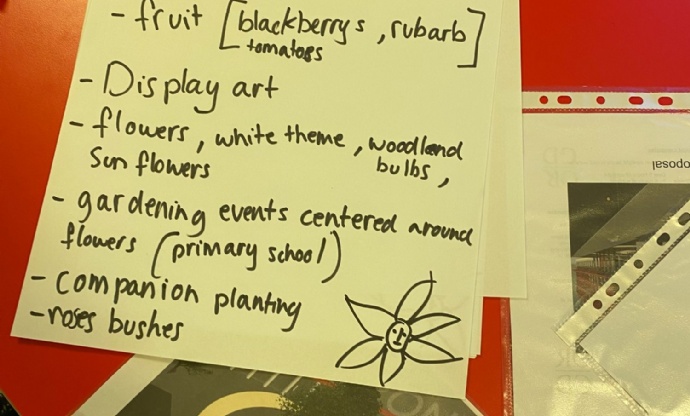 - fruit [blackberrys, rubarb]
tomatoes
- Display art
- flowers, white theme, woodland
Sun flowers bulbs,
- gardening events centered around
flowers (primary school)
- Companion planting
- roses bushes
oposal